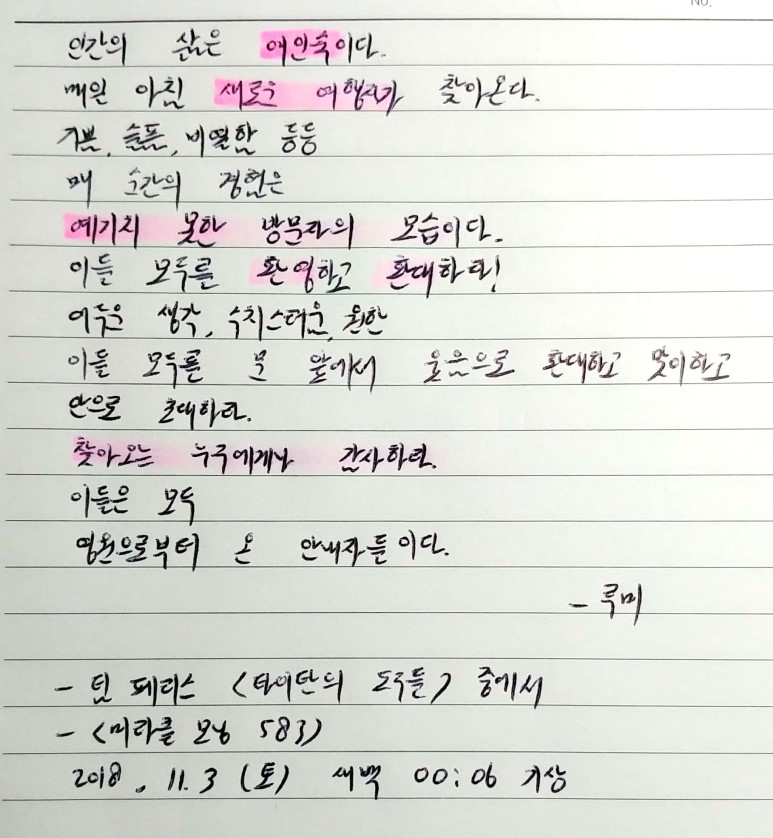 No.
인간의 삶은 여인숙이다.
매일 아침 새로운 여행자가 찾아온다.
기쁨, 슬픔, 비열함 등등
매 순간의 경험은
예기치 못한 방문자의 모습이다.
이들 모두를 환영하고 환대하라!
어두운 생각, 수치스러움, 원한
이들 모두를 문 앞에서 웃음으로 환대하고 맞이하고
안으로 초대하라.
찾아오는 누구에게나 감사하라.
이들은 모두
영원으로부터 온 안내자들이다.
- 루미
- 팀 페리스 <타이탄의 도구들> 중에서
- <미라클 모닝 583>
2018. 11. 3 (토) 새벽 00:06 기상